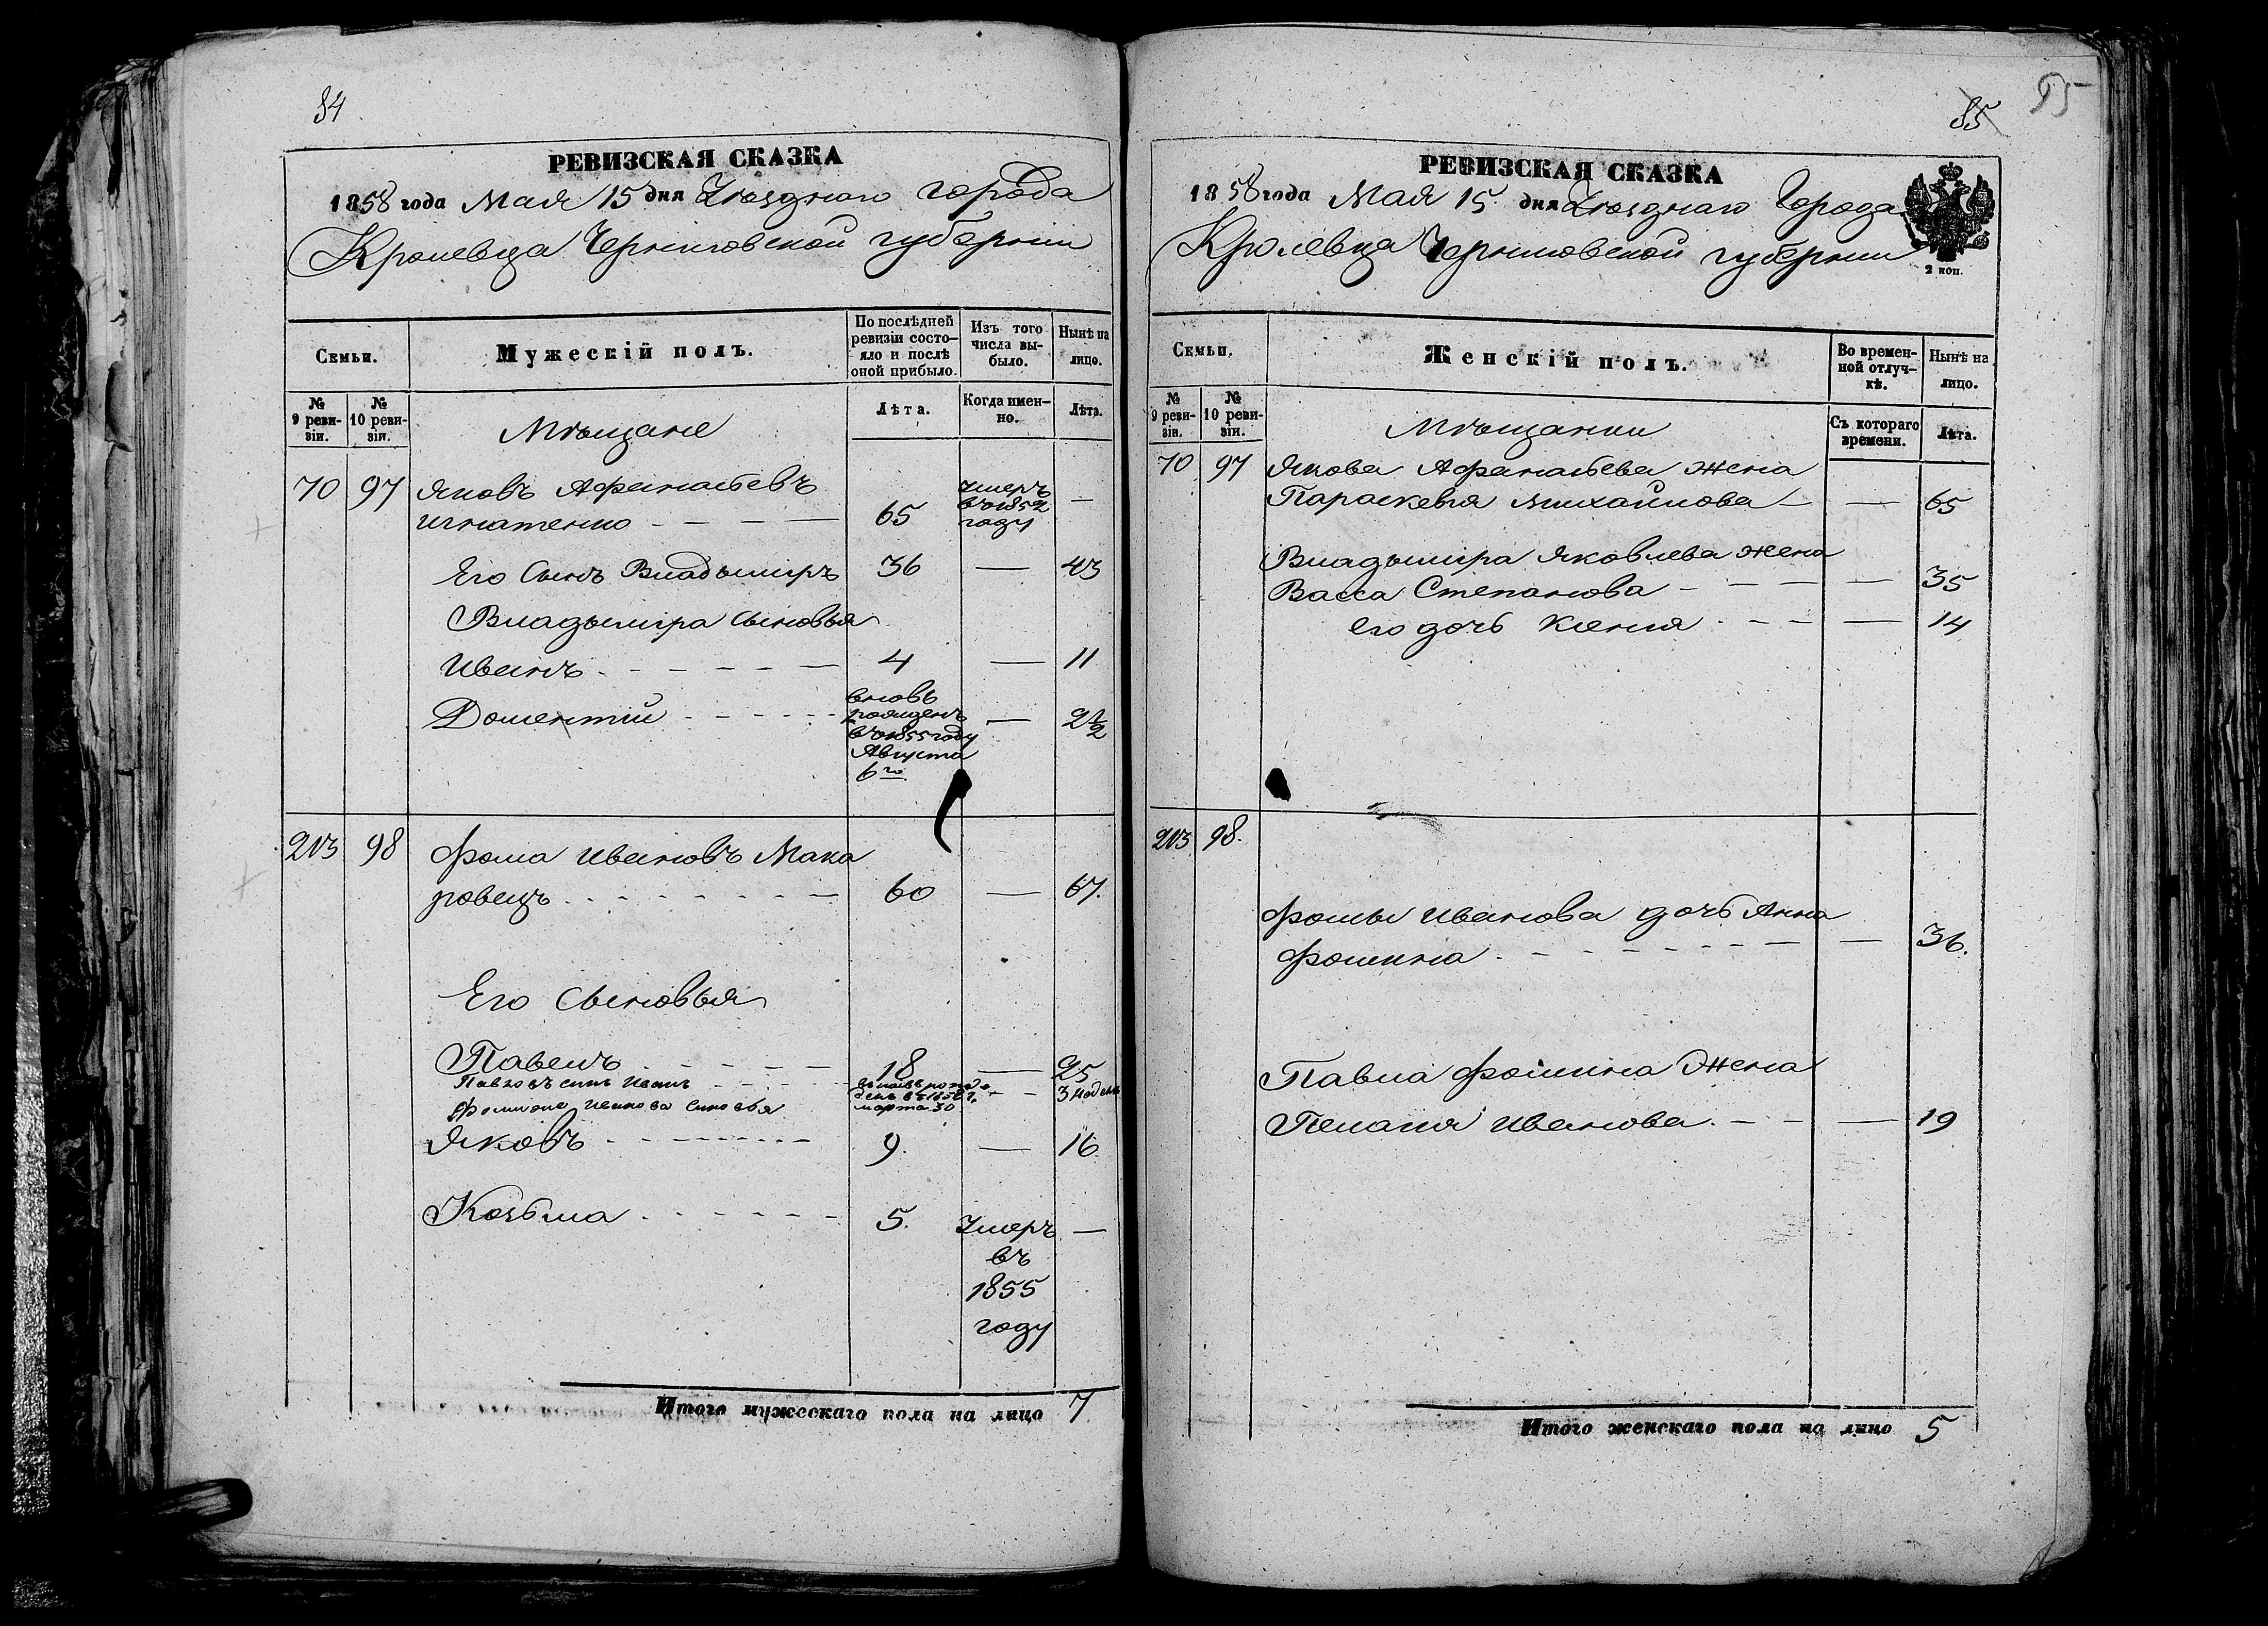 84
РЕВИЗСКАЯ СКАЗКА
1858 года Мая 15 дня Уѣзднаго города
Кролевца Черниговской губерніи
Семьи.
Мужескій полъ.
По послѣдней
ревизіи состо-
яло и послѣ
оной прибыло.
Изъ того
числа вы-
было.
Нынѣ на
лицо.
№
9 реви-
зіи.
№
10 реви-
зіи.
Мѣщане
Лѣта.
Когда имен-
но.
Лѣта.
70 97 Яковъ Афанасьевъ
Игнатенко - - - — 65 умеръ въ 1852 году —
Его Сынъ Владыміръ 36 — 43
Владыміра Сыновья
Иванъ - - - - - — 4 — 11
Дометтій - - - - - - вновь рожденъ въ 1855 году Августа 6го — 2½
213 98 Фома Ивановъ Мака
ровецъ - - - - - - - — 60 — 67.
Его Сыновья
Павелъ - - - - - 18 — 25
Павловъ сынъ Иванъ - - - - вновь рожденъ въ 1858 г. марта 30 - - 3 недели
Фомины Иванова Сыновья
Яковъ - - - - - - - - 9. — 16.
Козьма - - - - - - 5. Умеръ —
въ
1855
году
Итого мужескаго пола на лицо 7
85
85
РЕВИЗСКАЯ СКАЗКА
1858 года Мая 15. дня Уѣзднаго Города
Кролевца Черниговской губерніи
2 коп.
Семьи.
Женскій полъ.
Во времен-
ной отлуч-
кѣ.
Нынѣ на
лицо.
№
9 реви-
зіи.
№
10 реви-
зіи.
Мѣщанки
Съ котораго
времени.
Лѣта.
70 97 Якова Афанасьева жена
Параскевія Михайлова — — 65
Владыміра Яковлева жена
Васса Степанова - - - - — 35
его дочь Ксенія - - - — 14
213 98.
Фомы Иванова дочь Анна
Фомина - - - - - - - — — 36.
Павла Фомина Жена
Пелагія Иванова. - - — 19
Итого женскаго пола на лицо 5